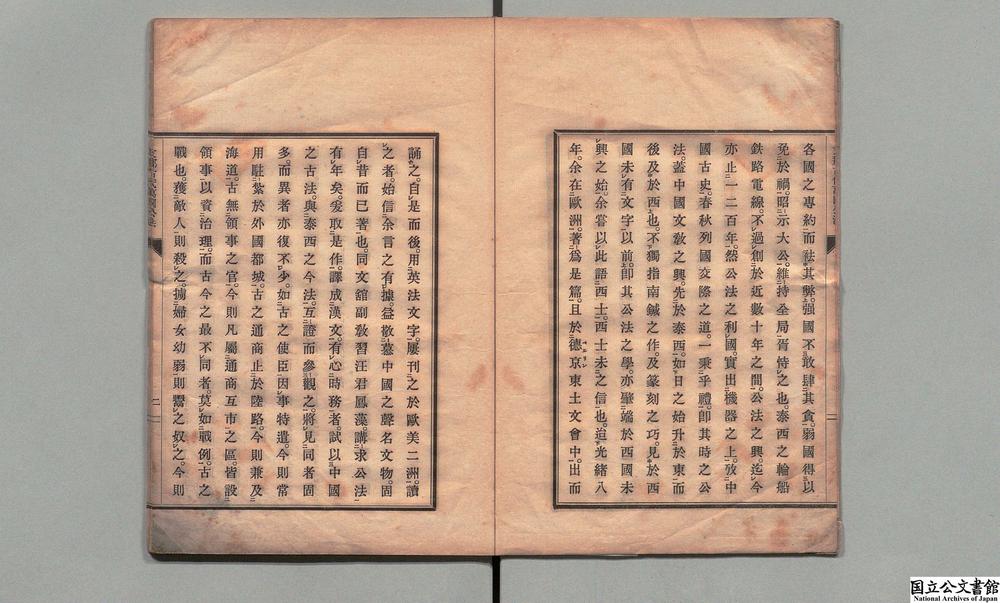 各國之專約而祛其弊。强國不敢肆其貪。弱國得以
免於禍。昭示大公。維持全局。胥恃之也。泰西之輪船
鉄路電線。不過創於近數十年之間。公法之興。迄今
亦止一二百年。然公法之利國。實出機器之上。攷中
國古史。春秋列國交際之道。一秉乎禮。卽其時之公
法。蓋中國文敎之興。先於泰西。如日之始升於東。而
後及於西也。不獨指南鍼之作。及篆刻之巧。見於西
國未有文字以前。卽其公法之學。亦肇端於西國未
興之始。余嘗以此語西士。西士未之信也。迨光緒八
年。余在歐洲。著爲是篇。且於德京東土文會中。出而
誦之。自是而後。用英法文字。屢刊之於歐美二洲。讀
之者。始信余言之有據。益散慕中國之聲名文物。固
自昔而已著也。同文舘副敎習汪君鳳藻。講求公法
有年矣。爰取是作。譯成漢文。有心時務者。試以中國
之古法。與泰西之今法。互證而參觀之。將見同者固
多。而異者亦復不少。如古之使臣。因事特遣。今則常
用駐紮於外國都城。古之通商。止於陸路。今則兼及
海道。古無領事之官。今則凡屬通商互市之區。皆設
領事。以資治理。而古今之最不同者。莫如戰例。古之
戰也。獲敵人則殺之。擄婦女幼弱。則鬻之奴之。今則
二
国立公文書館
National Archives of Japan